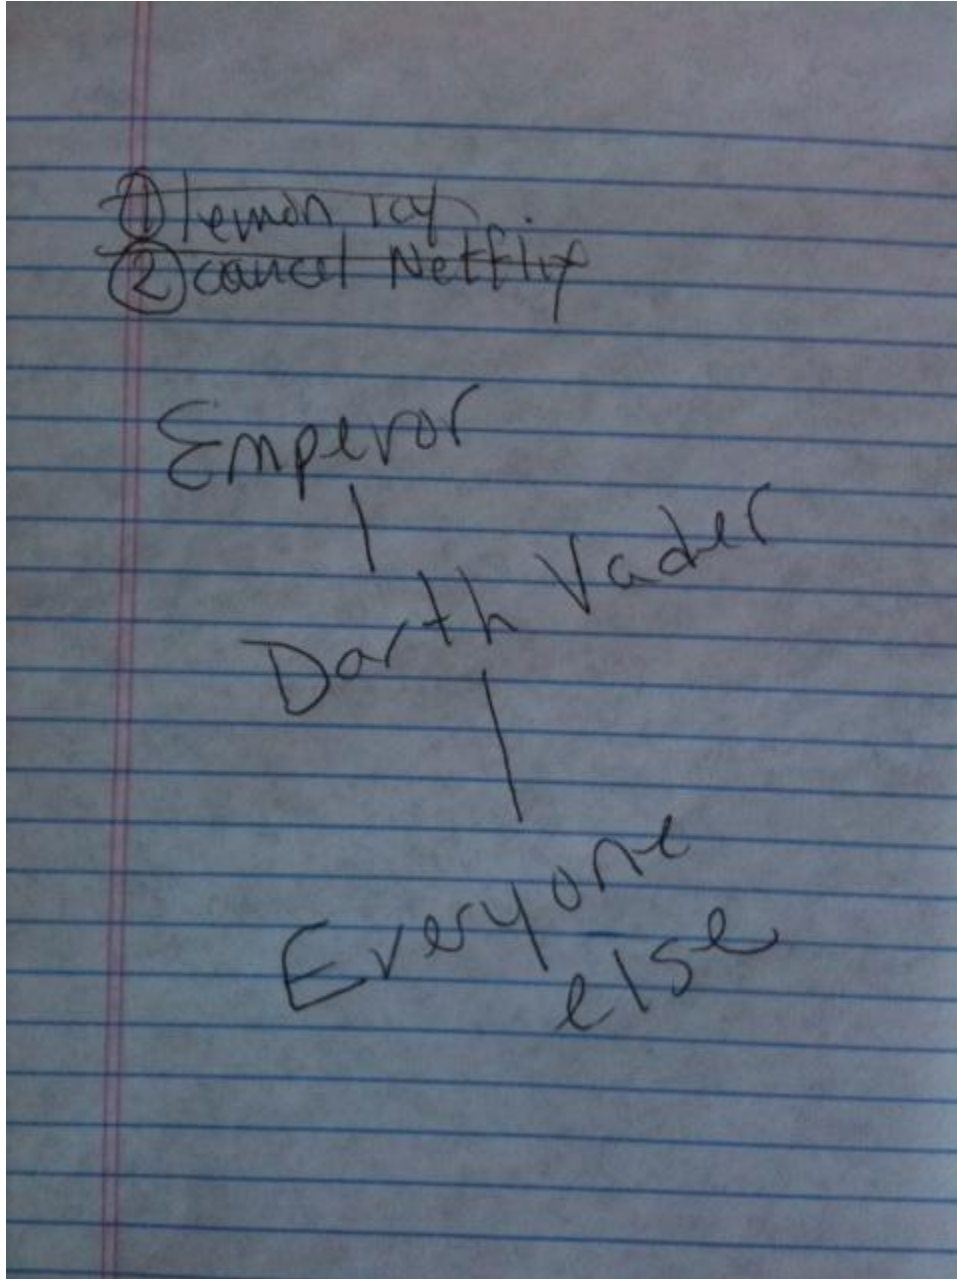 ① lemon icy
② cancel Netflix
Emperor
Darth Vader
Everyone
else